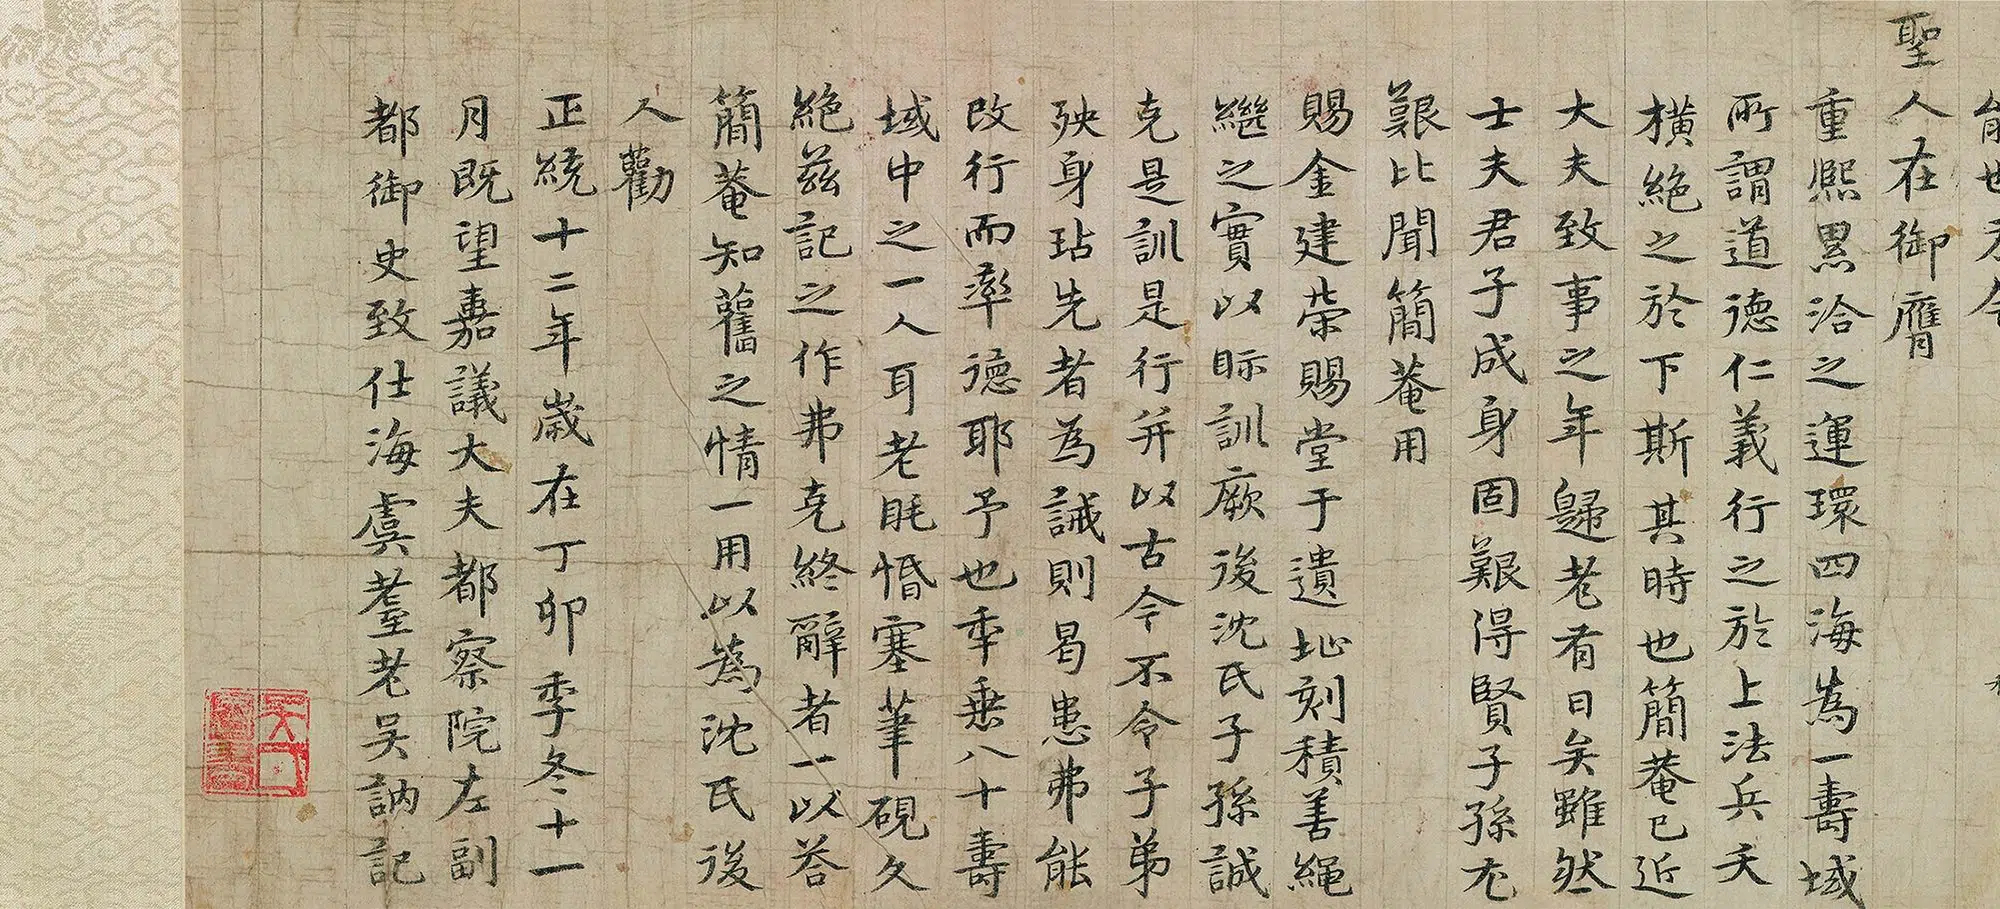 能也於今
聖人在御膺
重熙累洽之運環四海為一壽域
所謂道德仁義行之於上法兵夭
橫絕之於下斯其時也簡菴已近
大夫致事之年歸老有日矣雖然
士夫君子成身固艱得賢子孫尤
艱比聞簡菴用
賜金建荣賜堂于遺址刻積善繩
繼之實以眎訓厥後沈氏子孫誠
克是訓是行并以古今不令子弟
殃身玷先者為誡則曷患弗能
改行而率德耶予也年垂八十壽
域中之一人耳老眊惛塞筆硯久
絕茲記之作弗克終辭者一以荅
簡菴知舊之情一用以為沈氏後
人勸
正統十二年歲在丁卯季冬十一
月既望嘉議大夫都察院左副
都御史致仕海虞耋老吳訥記